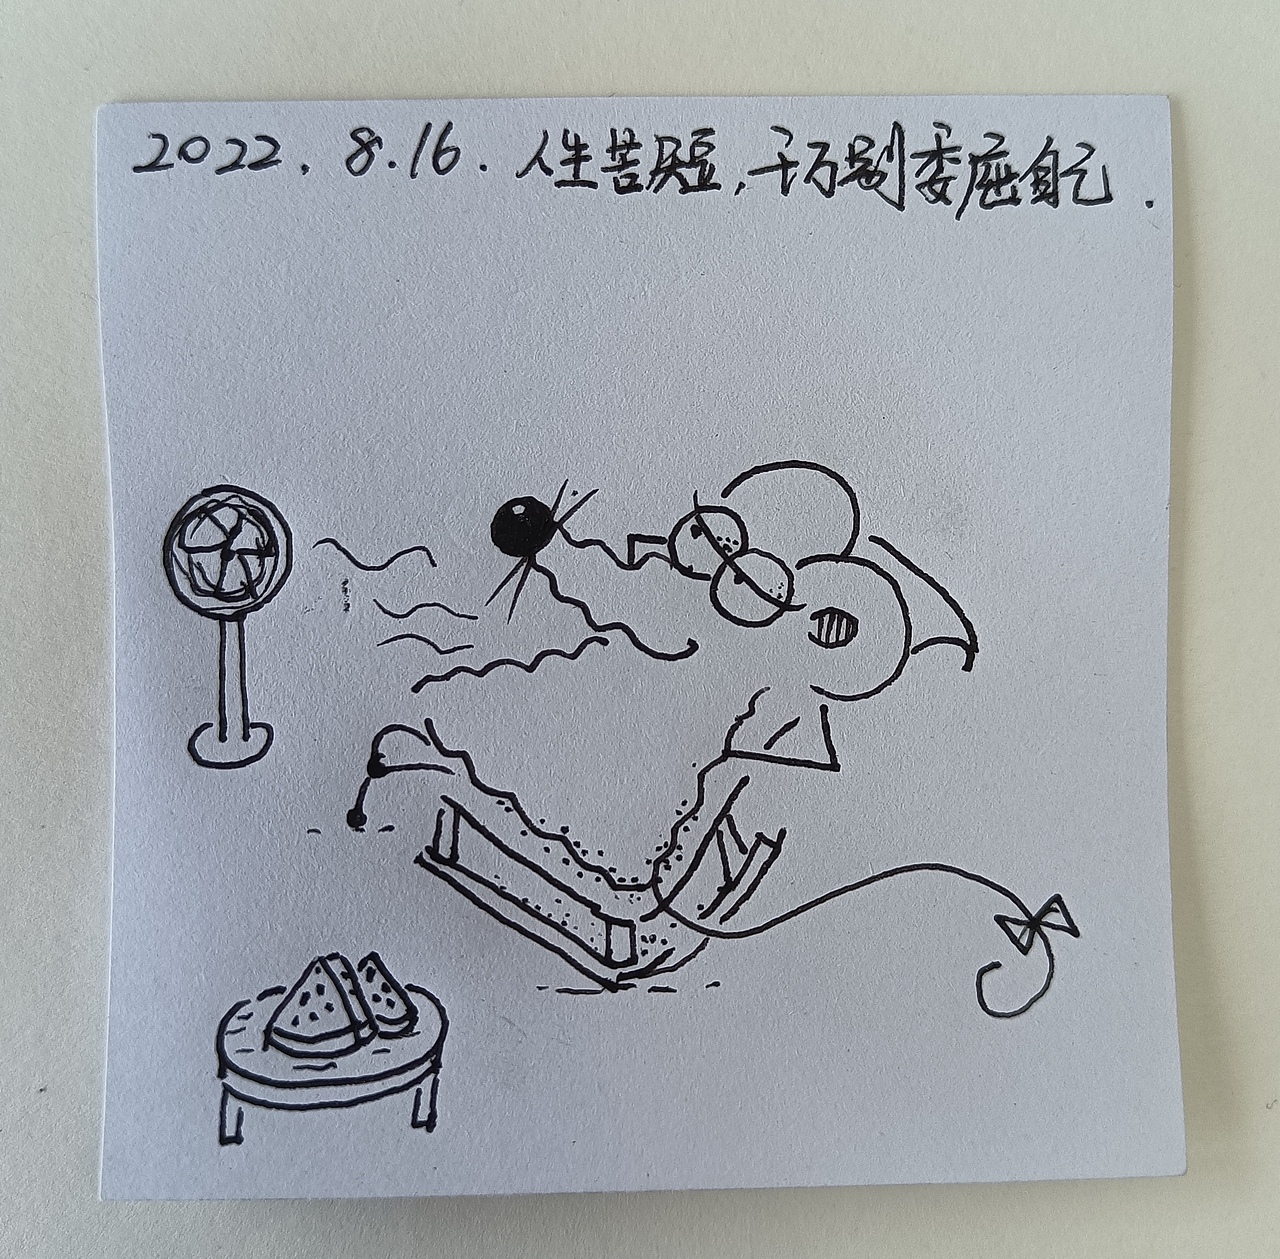 2022. 8.16. 人生苦短,千万别委屈自己.